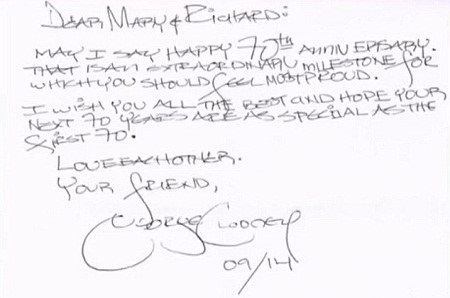 DEAR MARY & RICHARD:
MAY I SAY HAPPY 70th ANNIVERSARY.
THAT IS AN EXTRAORDINARY MILESTONE FOR
WHICH YOU SHOULD FEEL MOST PROUD.
I WISH YOU ALL THE BEST AND HOPE YOUR
NEXT 70 YEARS ARE AS SPECIAL AS THE
FIRST 70.
LOVE EACH OTHER.
YOUR FRIEND,
GEORGE CLOONEY
09/14